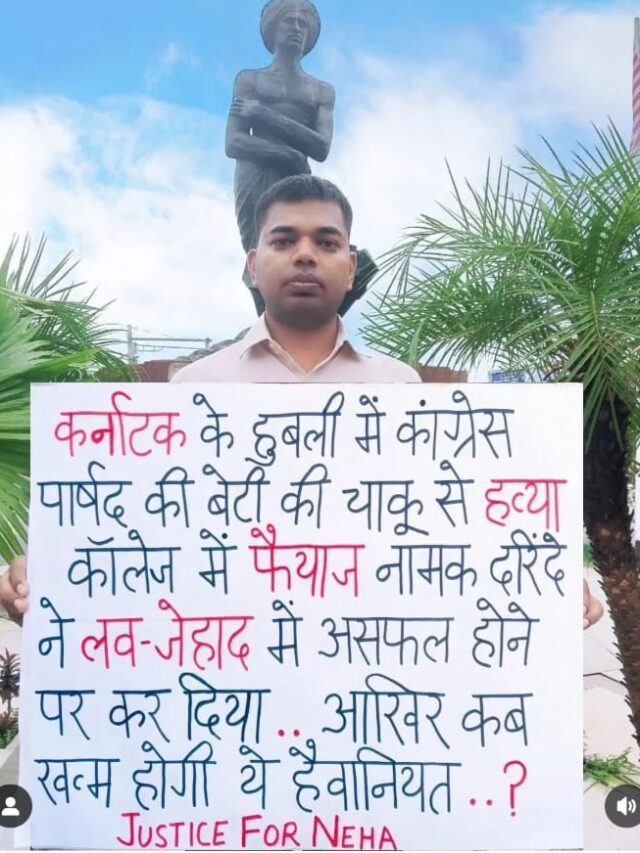 कर्नाटक के हुबली में कांग्रेस
पार्षद की बेटी की चाकू से हत्या
कॉलेज में फैयाज नामक दरिंदे
ने लव-जेहाद में असफल होने
पर कर दिया.. आखिर कब
खत्म होगी ये हैवानियत..?
JUSTICE FOR NEHA